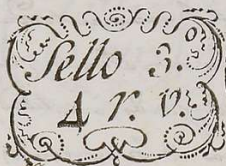 Sello 3.º
4 r. v.